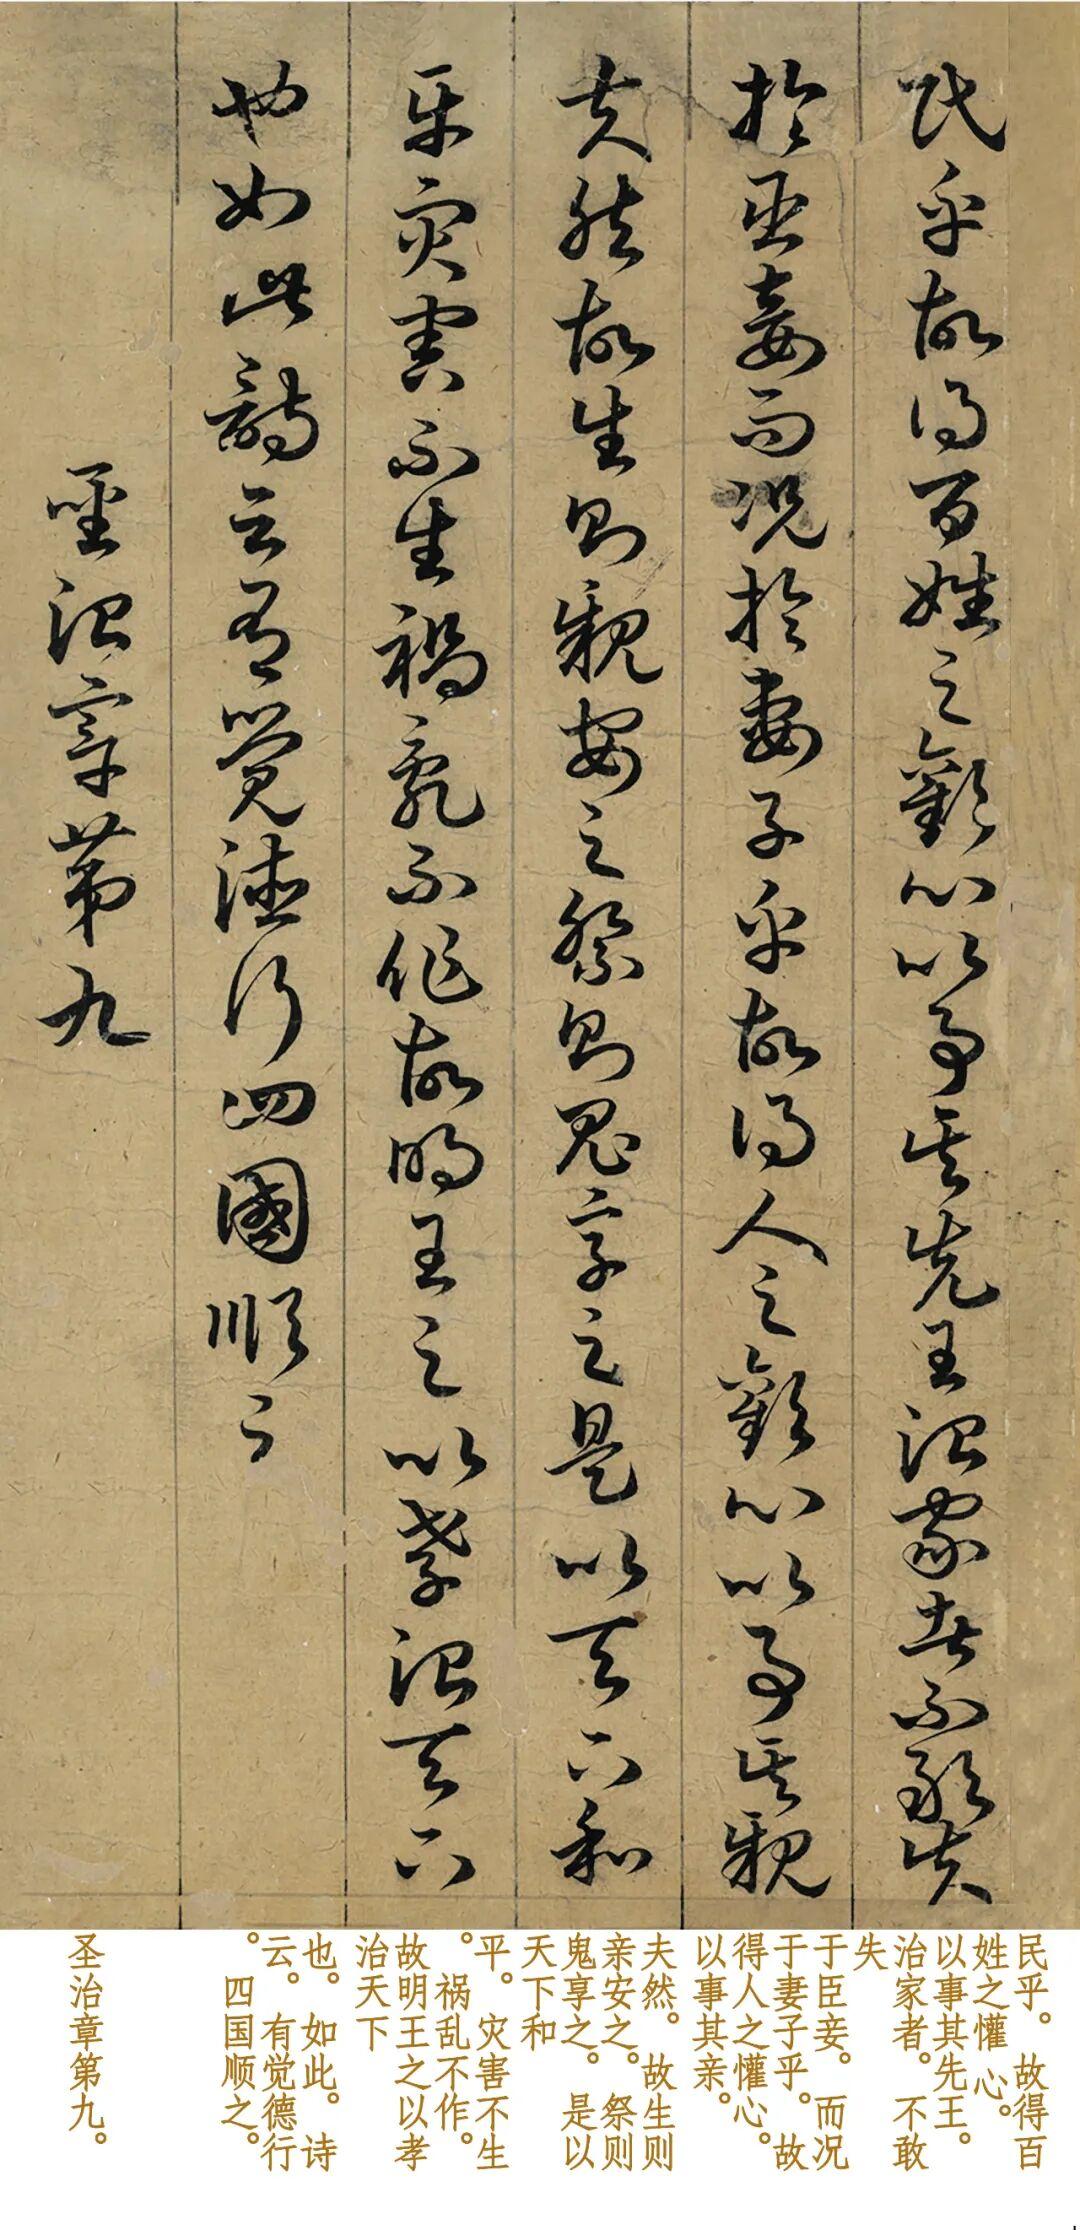 民乎故得百姓之歡心以事其先王治家者不敢失
於臣妾而况於妻子乎故得人之歡心以事其親
夫然故生則親安之祭則鬼享之是以天下和
平灾害不生禍亂不作故明王之以孝治天下
也如此詩云有覺德行四國順之
聖治章第九
民乎。故得百
姓之懽心。
以事其先王。
治家者。不敢
失
于臣妾。而况
于妻子乎。故
得人之懽心。
以事其亲。
夫然。故生则
亲安之。祭则
鬼享之。是以
天下和
平。灾害不生
。祸乱不作。
故明王之以孝
治天下
也。如此。诗
云。有觉德行
。四国顺之。
圣治章第九。